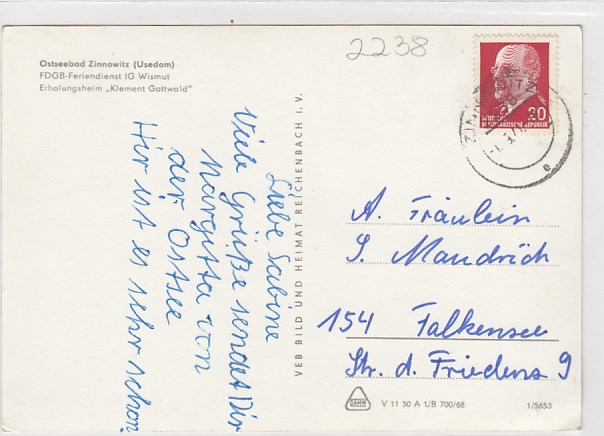 2238
Ostseebad Zinnowitz (Usedom)
FDGB-Feriendienst IG Wismut
Erholungsheim „Klement Gottwald"
Liebe Sabine
Viele Grüße sendet Dir
Margitta von
der Ostsee
Hir ist es sehr schön
VEB BILD UND HEIMAT REICHENBACH i. V.
20
DEUTSCHE
DEMOKRATISCHE REPUBLIK
A. Fräulein
S. Mandrich
154 Falkensee
Str. d. Friedens 9
V 11 50 A 1/B 700/68
1/5653